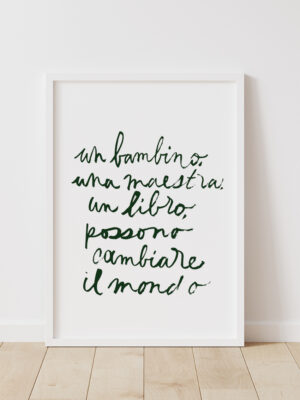 un bambino,
una maestra,
un libro,
possono
cambiare
il mondo